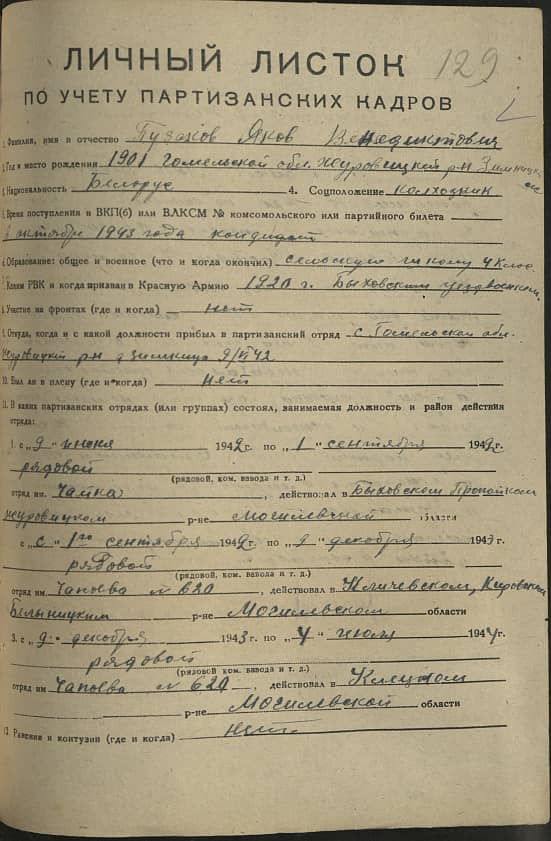 129
ЛИЧНЫЙ ЛИСТОК
ПО УЧЕТУ ПАРТИЗАНСКИХ КАДРОВ
1. Фамилия, имя и отчество Пузаков Яков Венедиктович
2. Год и место рождения 1901 Гомельской обл. Журовицкий р-н
3. Национальность Белорус 4. Соцположение Колхозник
5. Время поступления в ВКП(б) или ВЛКСМ № комсомольского или партийного билета
октября 1943 года кандидат
6. Образование: общее и военное (что и когда окончил) сельскую школу 4 клас.
7. Каким РВК и когда призван в Красную Армию 1920 г. Быховским
8. Участие на фронтах (где и когда) нет
9. Откуда, когда и с какой должности прибыл в партизанский отряд с Гомельской обл.
Журовицкий р-н д Зимница 9/VI 42
10. Был ли в плену (где и когда) нет
11. В каких партизанских отрядах (или группах) состоял, занимаемая должность и район действия
отряда:
1. с „9" июня 1942 г. по „1" сентября 1942 г.
рядовой
(рядовой, ком. взвода и т. д.)
отряд им. Чайка, действовал в Быховском Пропойском
журовицком р-не Могилевской области
с „с" 1го сентября 1942 г. по „9" декабря 1943 г.
рядовой
(рядовой, ком. взвода и т. д.)
отряд им. Чапаева № 620, действовал в Кличевском,
Белыницким р-не Могилевском области
3. с „9" декабря 1943 г. по „4" июля 1944 г.
рядовой
(рядовой, ком. взвода и т. д.)
отряд им Чапаева № 620, действовал в
р-не Могилевской области
12. Ранения и контузии (где и когда) нет